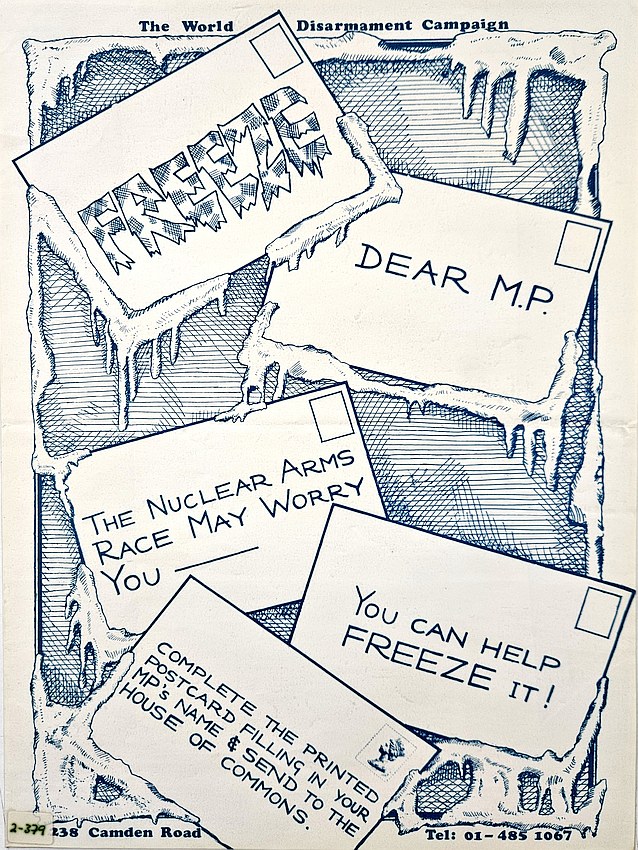 The World Disarmament Campaign
FREEZE
DEAR M.P.
THE NUCLEAR ARMS
RACE MAY WORRY
YOU
YOU CAN HELP
FREEZE IT!
COMPLETE THE PRINTED
POSTCARD FILLING IN YOUR
MP's NAME & SEND TO THE
HOUSE OF COMMONS.
2-379
238 Camden Road
Tel: 01-485 1067